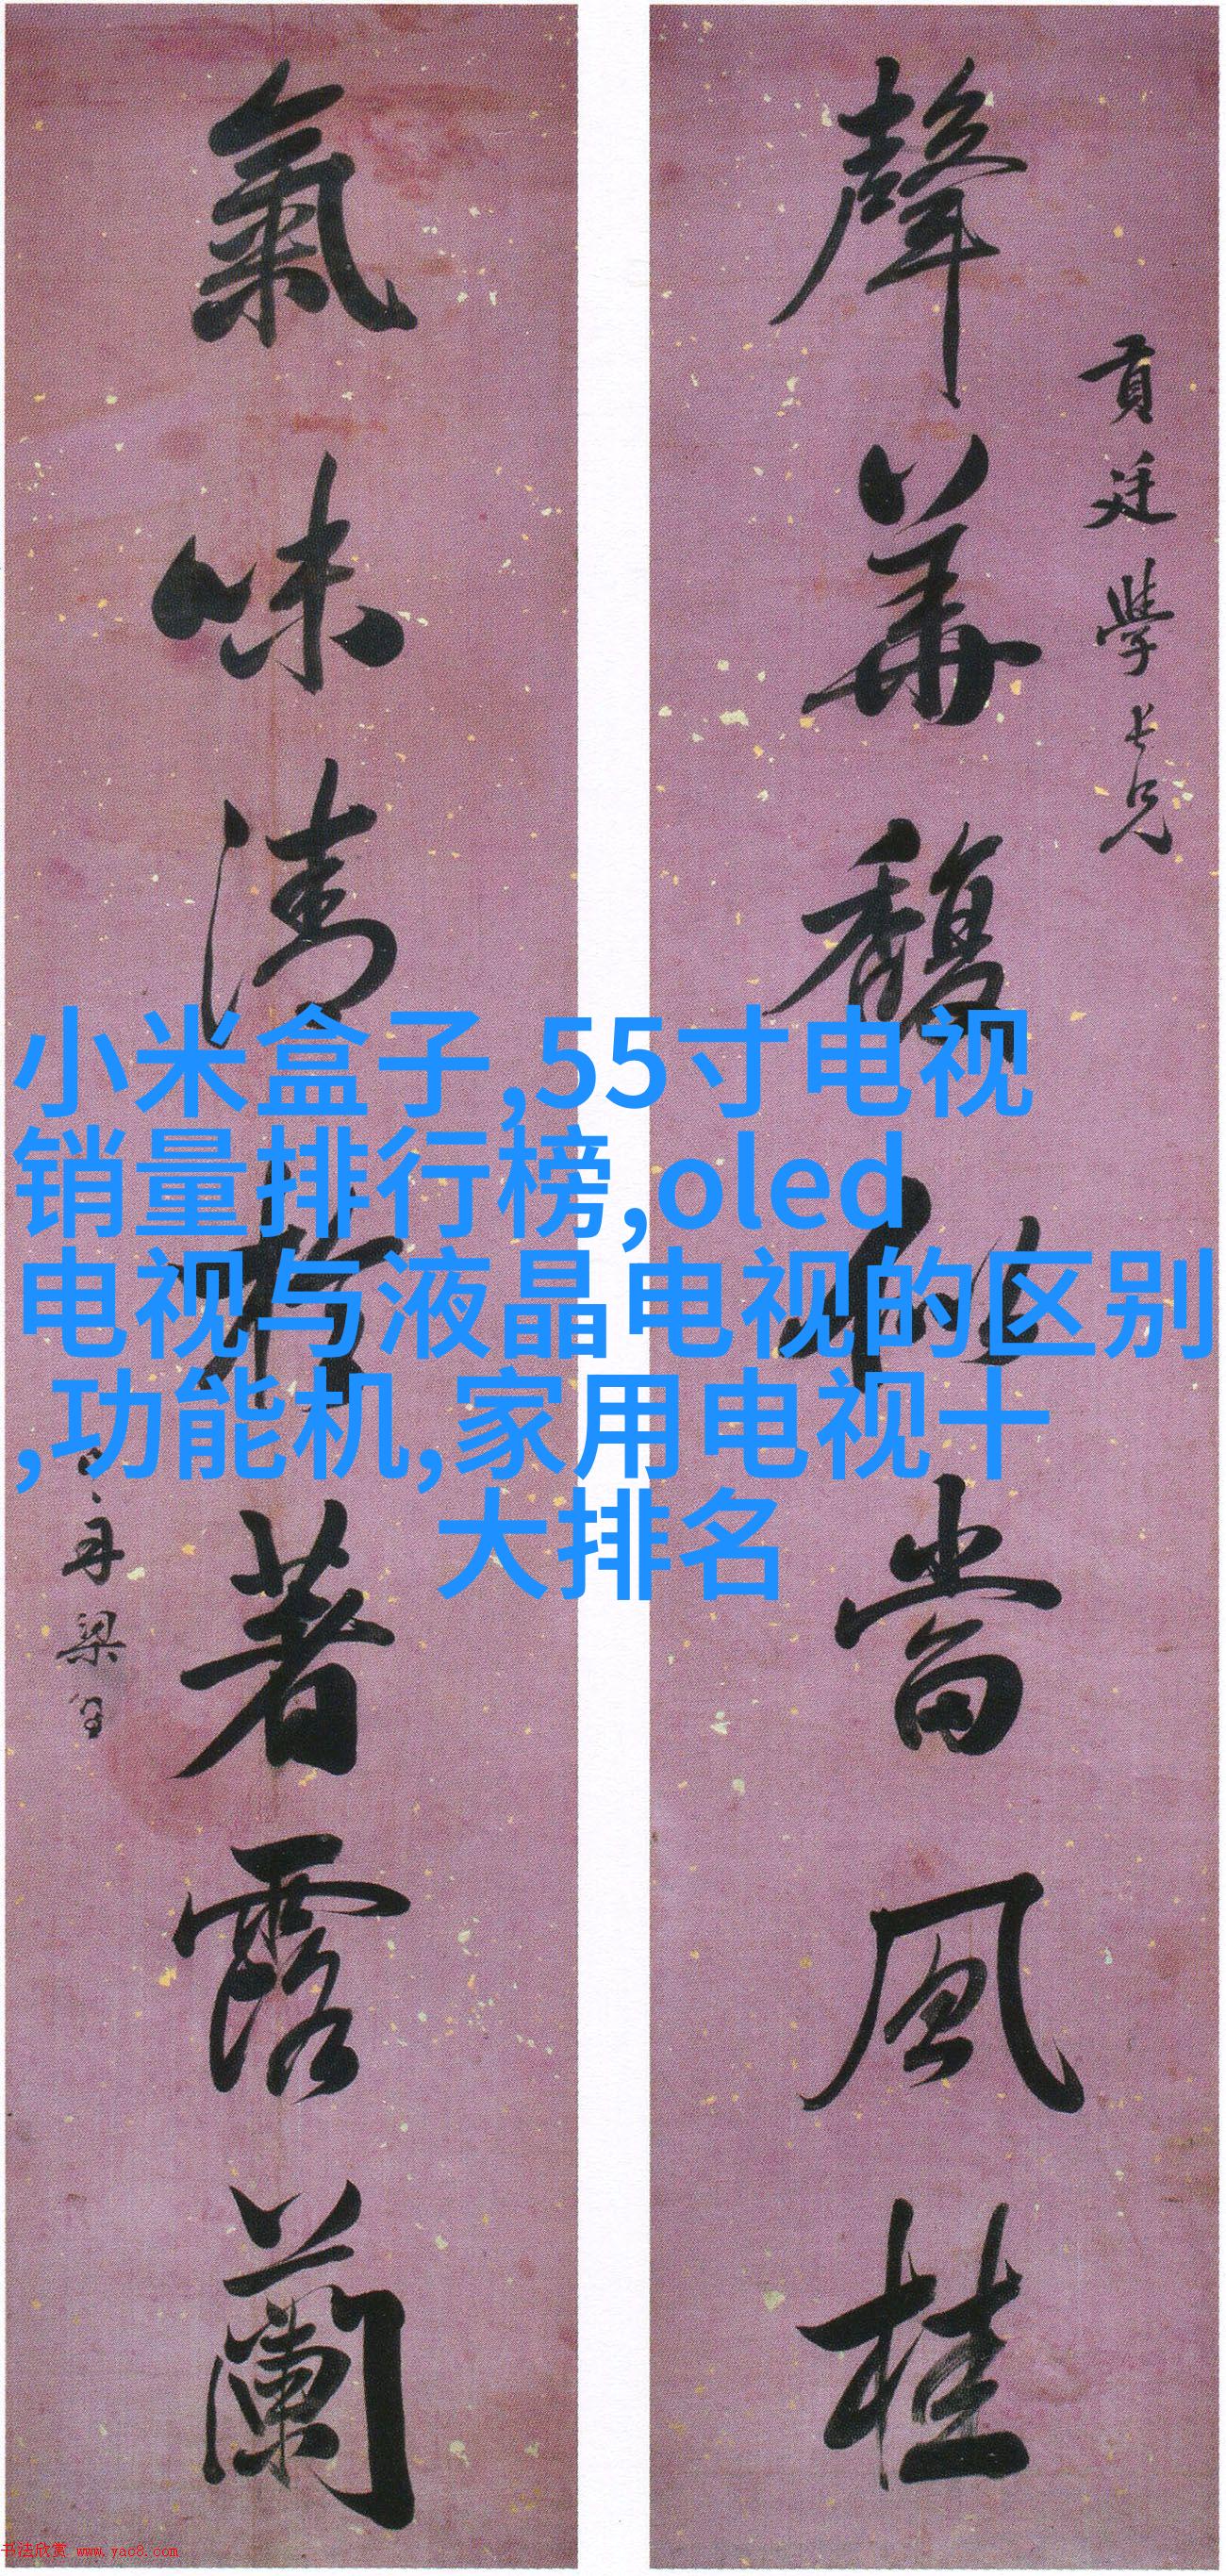 貢廷學長兄
聲華馥當風桂
氣味清著露蘭
舟梁
小米盒子,55寸电视
销量排行榜,oled
电视与液晶电视的区别
,功能机,家用电视十
大排名
书法欣赏 www.yac8.com